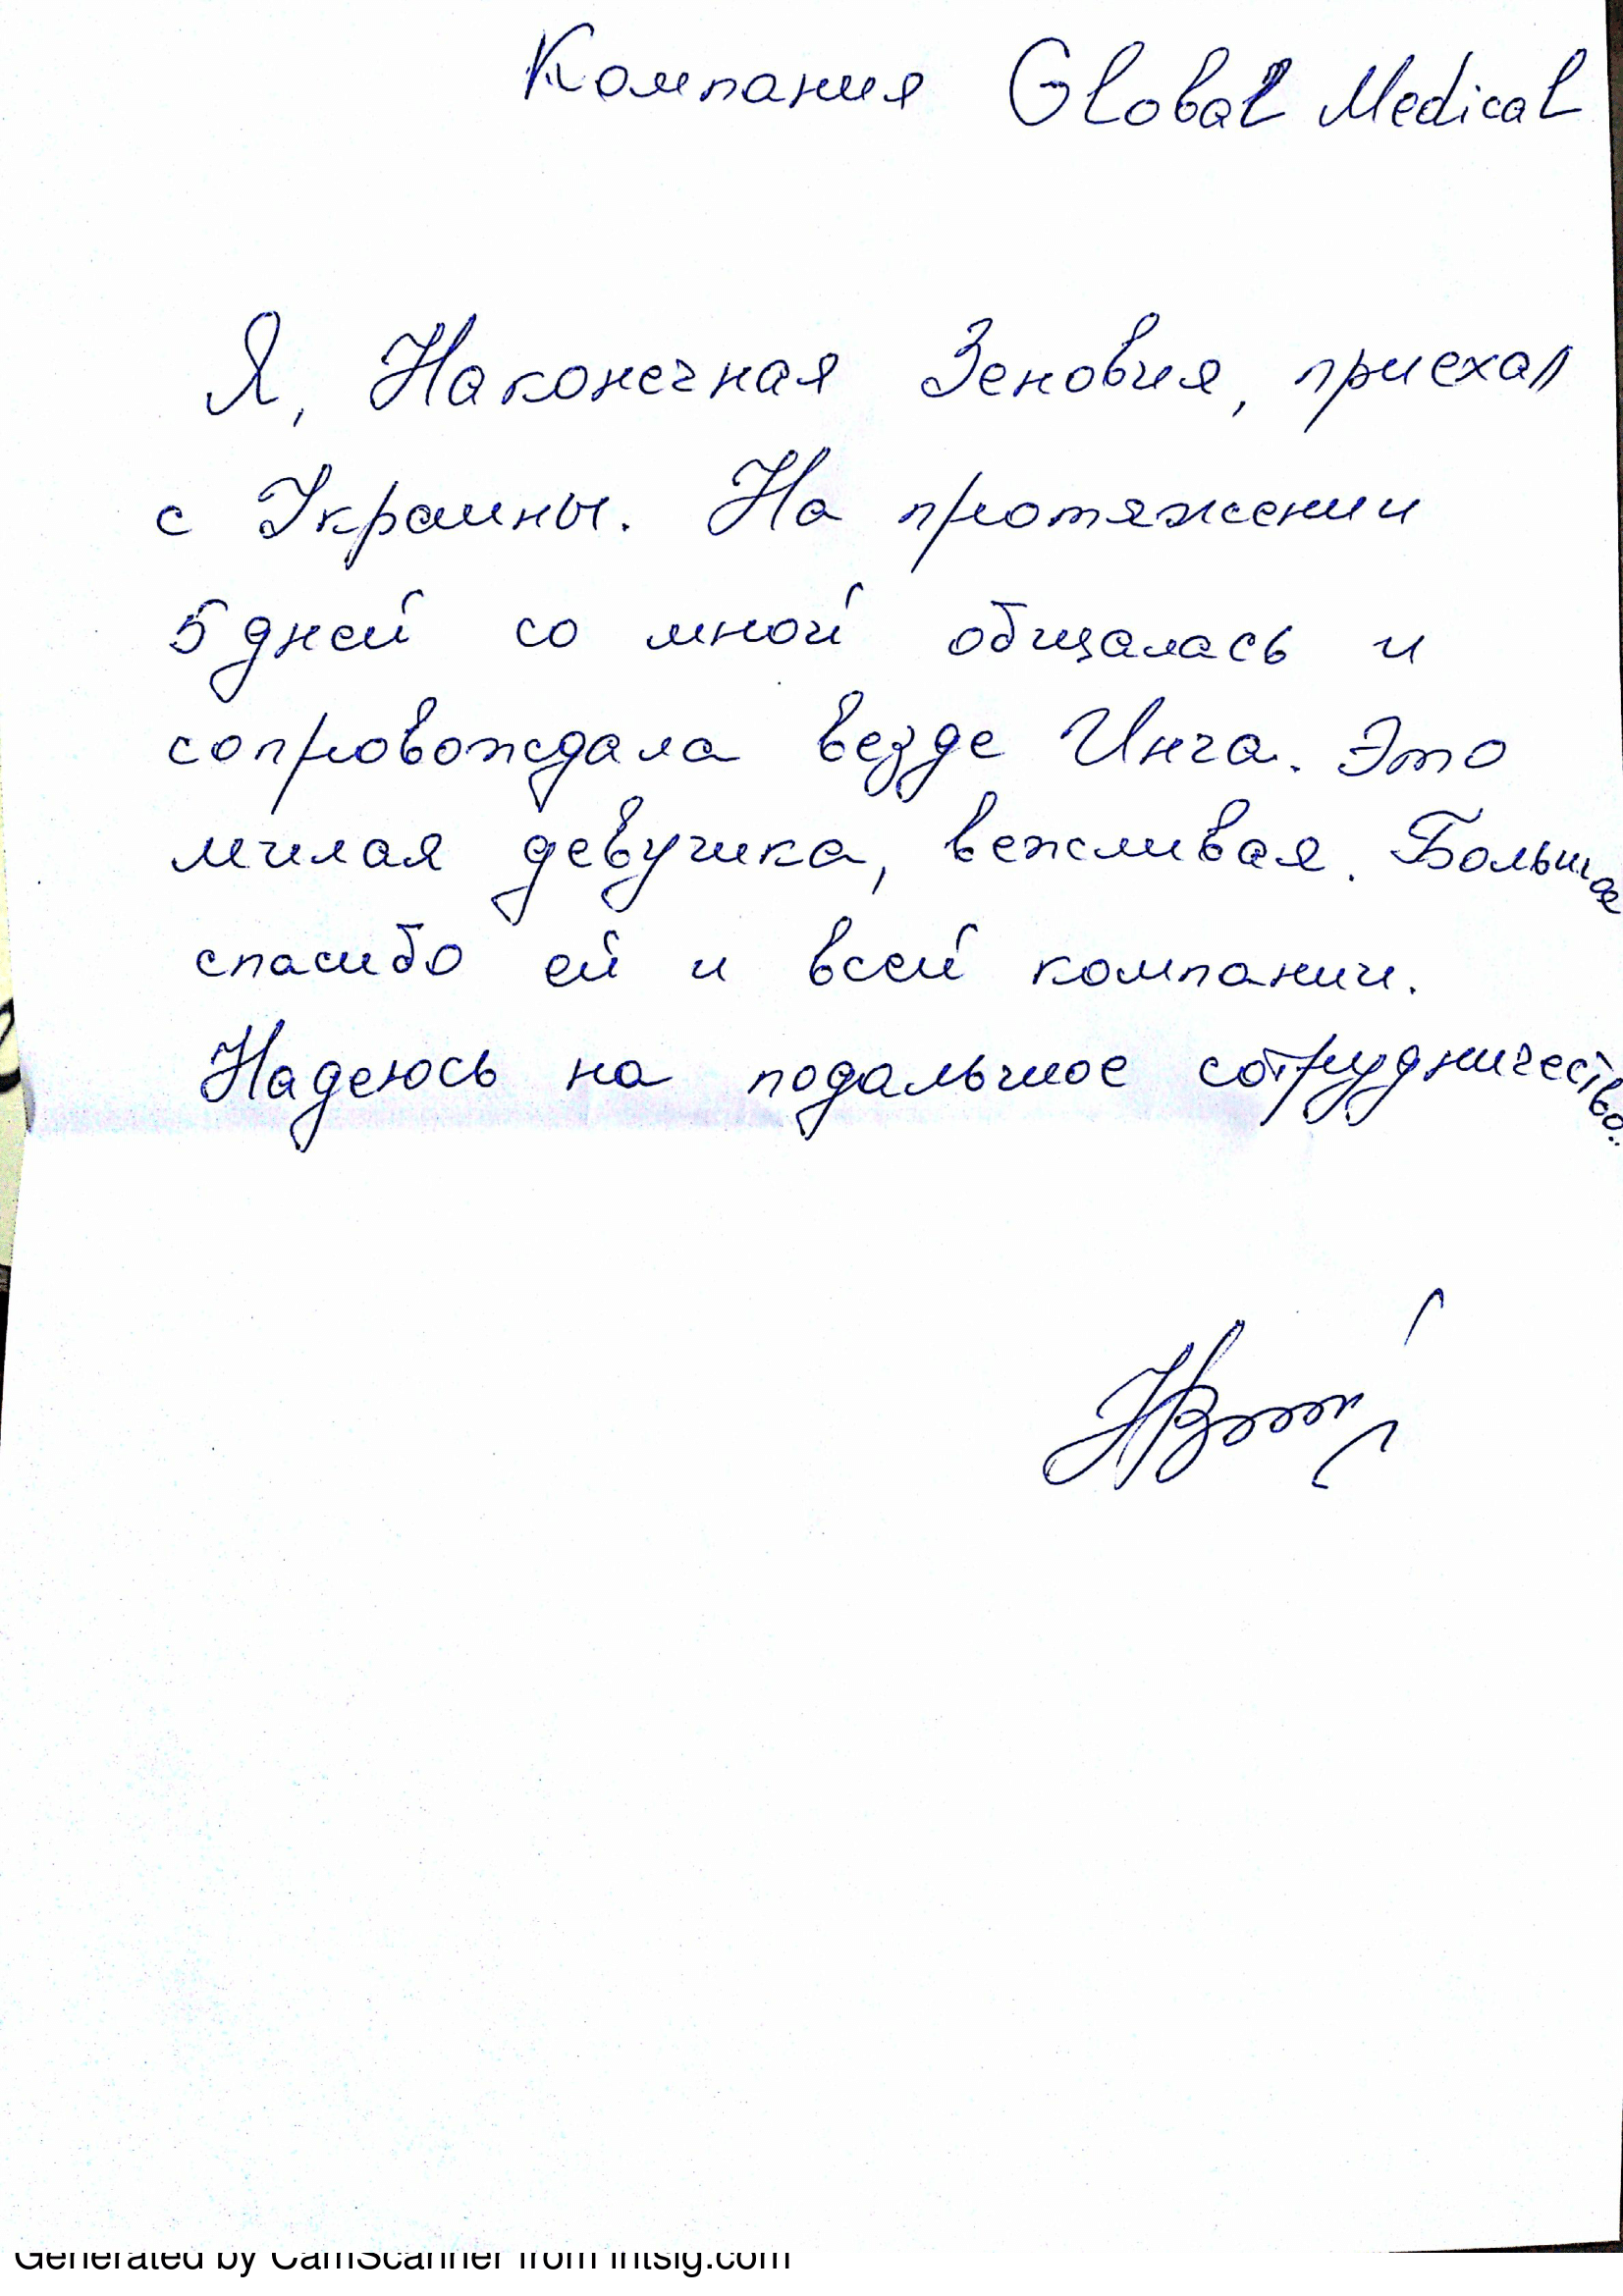 Компания Global Medical
Я, Наконечная Зеновия, приехал
с Украины. На протяжении
5 дней со мной общалась и
сопровождала везде Инга. Это
милая девушка, вежливая. Большое
спасибо ей и всей компании.
Надеюсь на подальшое сотрудничество.
Generated by CamScanner from intsig.com